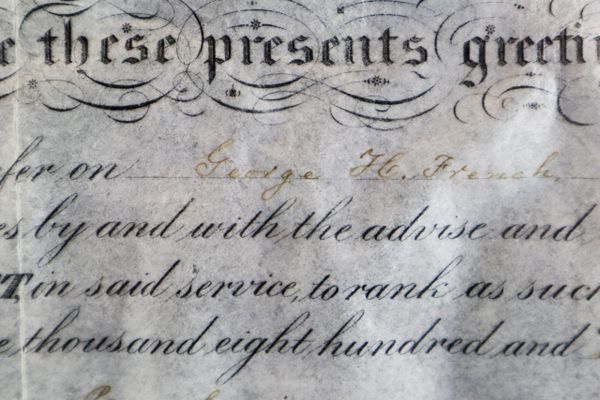 these presents greeti
fer on George H. French,
es by and with the advise and
in said service, to rank as such
e thousand eight hundred and